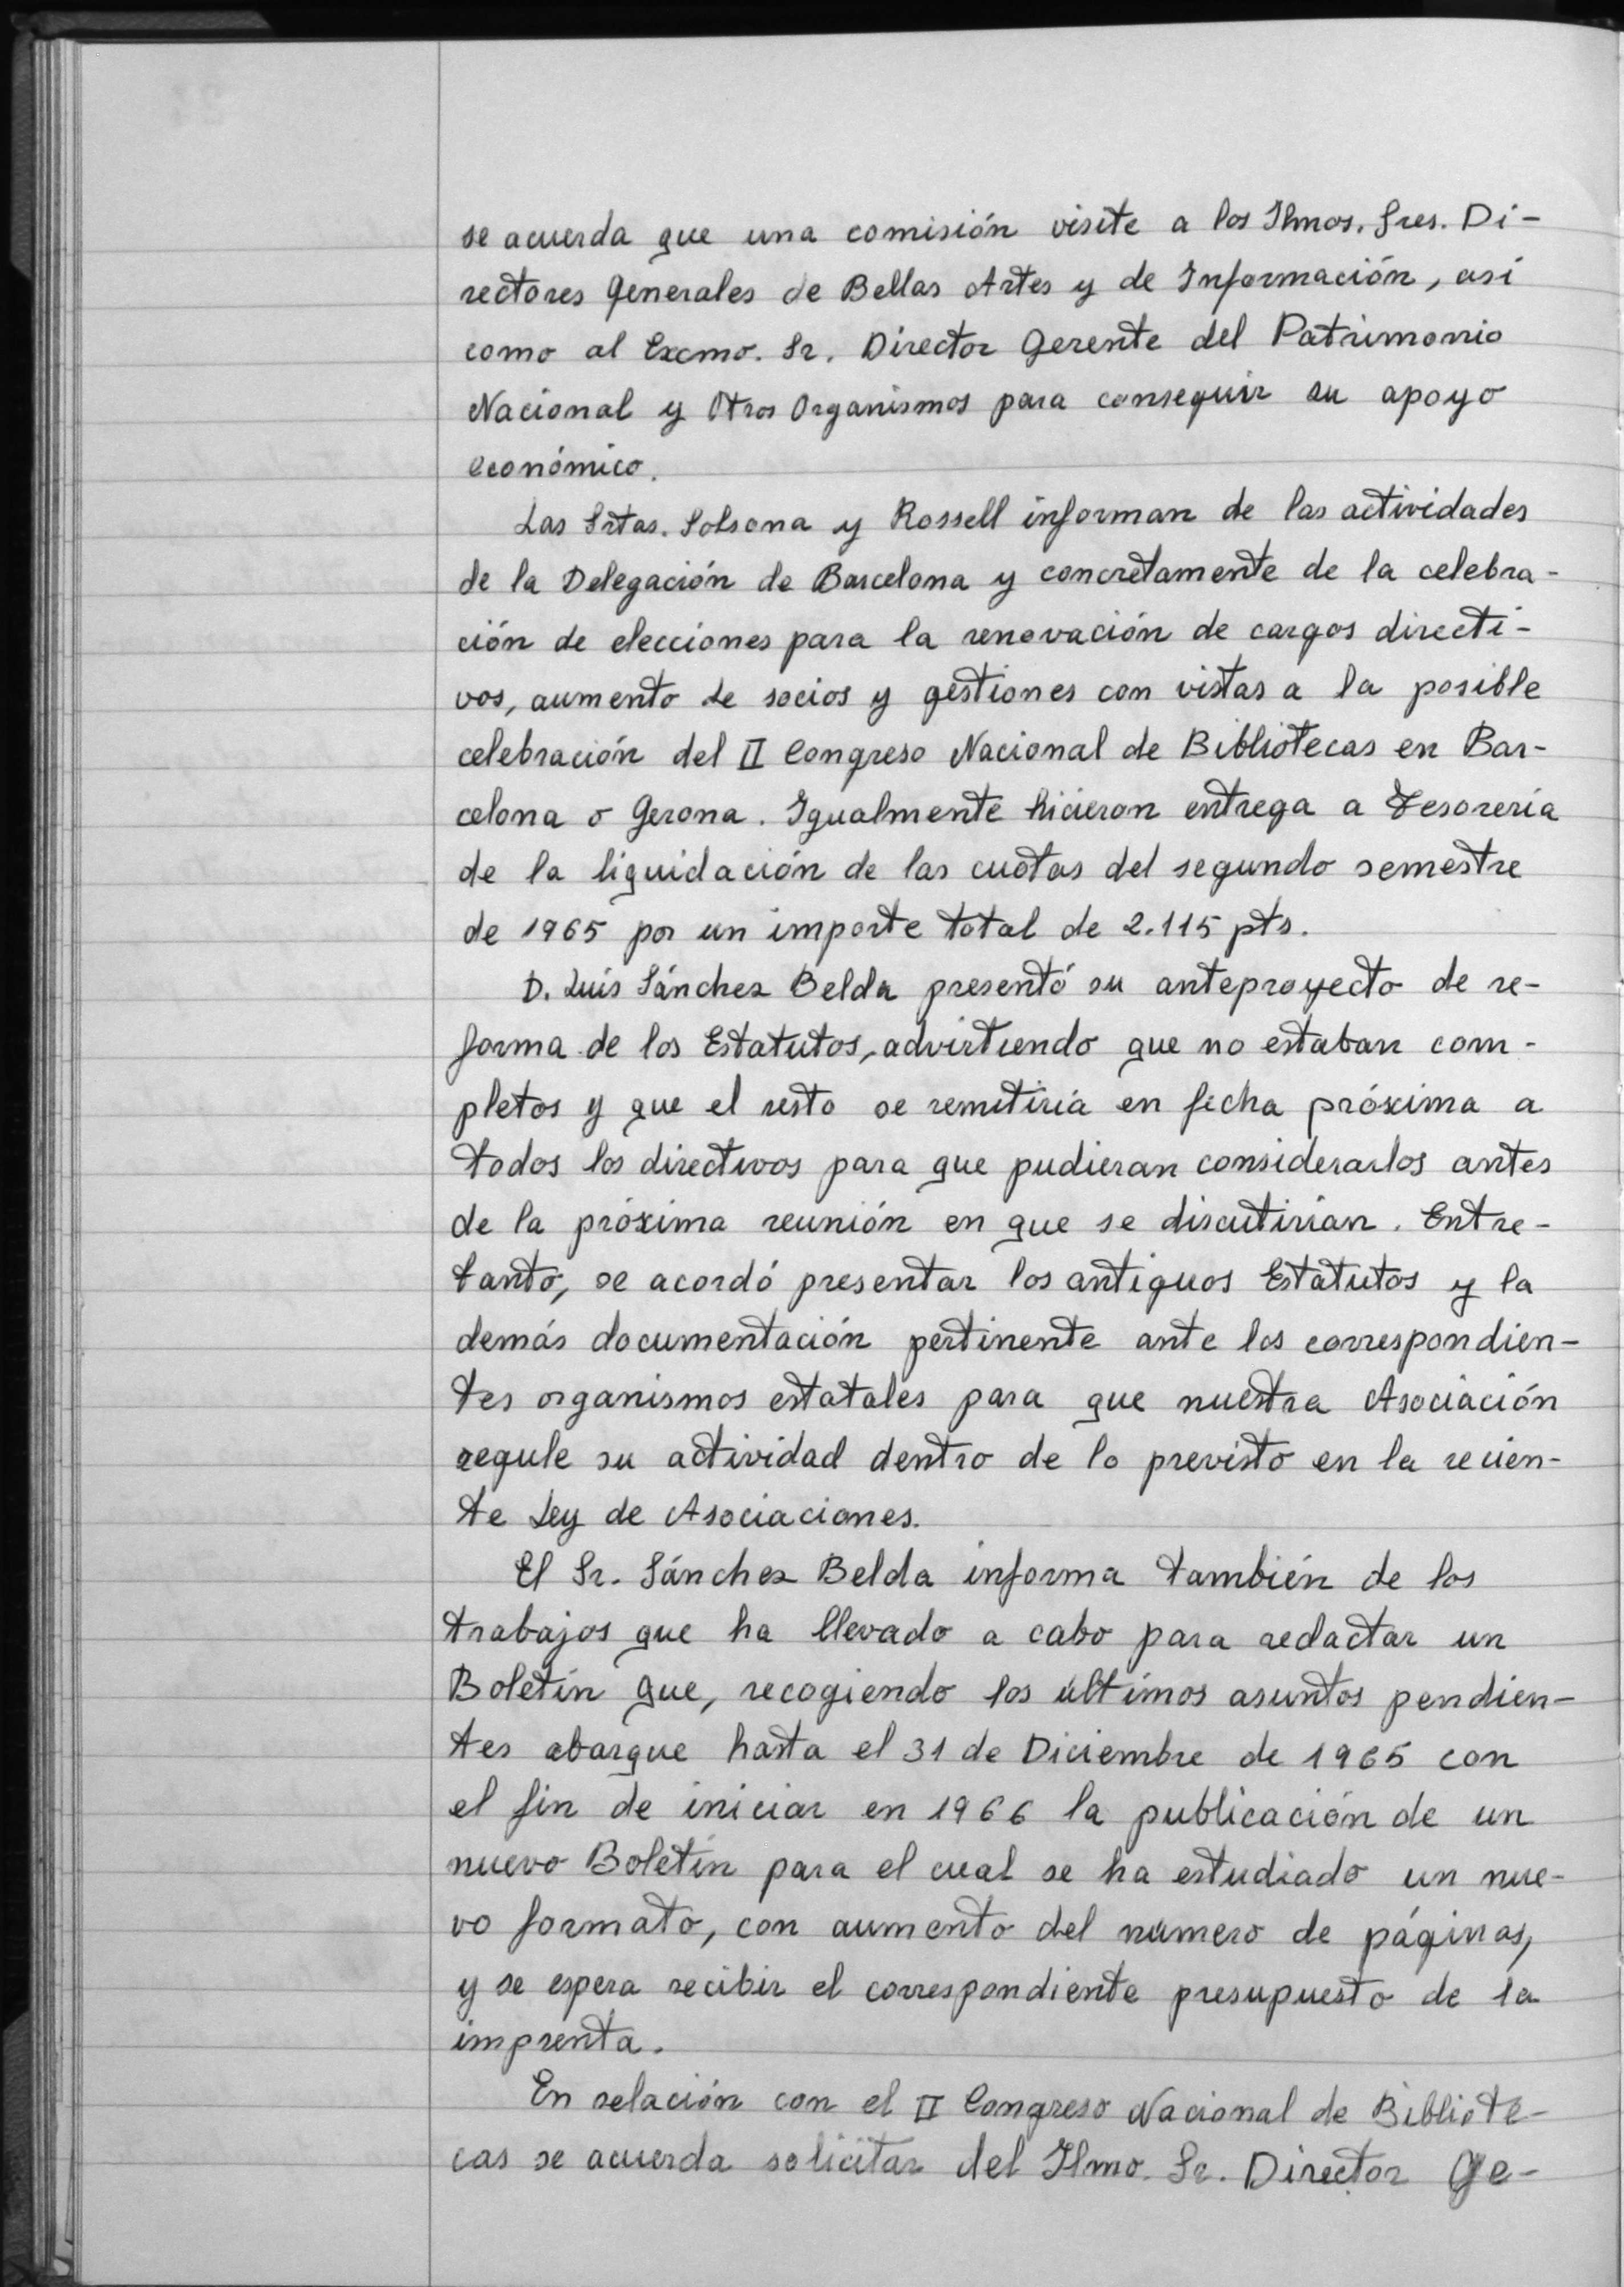 se acuerda que una comisión visite a los Ilmos. Sres. Di-
rectores Generales de Bellas Artes y de Información, así
como al Excmo. Sr. Director Gerente del Patrimonio
Nacional y Otros Organismos para conseguir su apoyo
económico.
Las Srtas. Solsona y Rossell informan de las actividades
de la Delegación de Barcelona y concretamente de la celebra-
ción de elecciones para la renovación de cargos directi-
vos, aumento de socios y gestiones con vistas a la posible
celebración del II Congreso Nacional de Bibliotecas en Bar-
celona o Gerona. Igualmente hicieron entrega a Tesorería
de la liquidación de las cuotas del segundo semestre
de 1965 por un importe total de 2.115 pts.
D. Luis Sánchez Belda presentó su anteproyecto de re-
forma de los Estatutos, advirtiendo que no estaban com-
pletos y que el resto se remitiría en fecha próxima a
todos los directivos para que pudieran considerarlos antes
de la próxima reunión en que se discutirían. Entre-
tanto, se acordó presentar los antiguos Estatutos y la
demás documentación pertinente ante los correspondien-
tes organismos estatales para que nuestra Asociación
regule su actividad dentro de lo previsto en la recien-
te Ley de Asociaciones.
El Sr. Sánchez Belda informa también de los
trabajos que ha llevado a cabo para redactar un
Boletín que, recogiendo los últimos asuntos pendien-
tes abarque hasta el 31 de Diciembre de 1965 con
el fin de iniciar en 1966 la publicación de un
nuevo Boletín para el cual se ha estudiado un nue-
vo formato, con aumento del número de páginas,
y se espera recibir el correspondiente presupuesto de la
imprenta.
En relación con el II Congreso Nacional de Bibliote-
cas se acuerda solicitar del Ilmo. Sr. Director Ge-